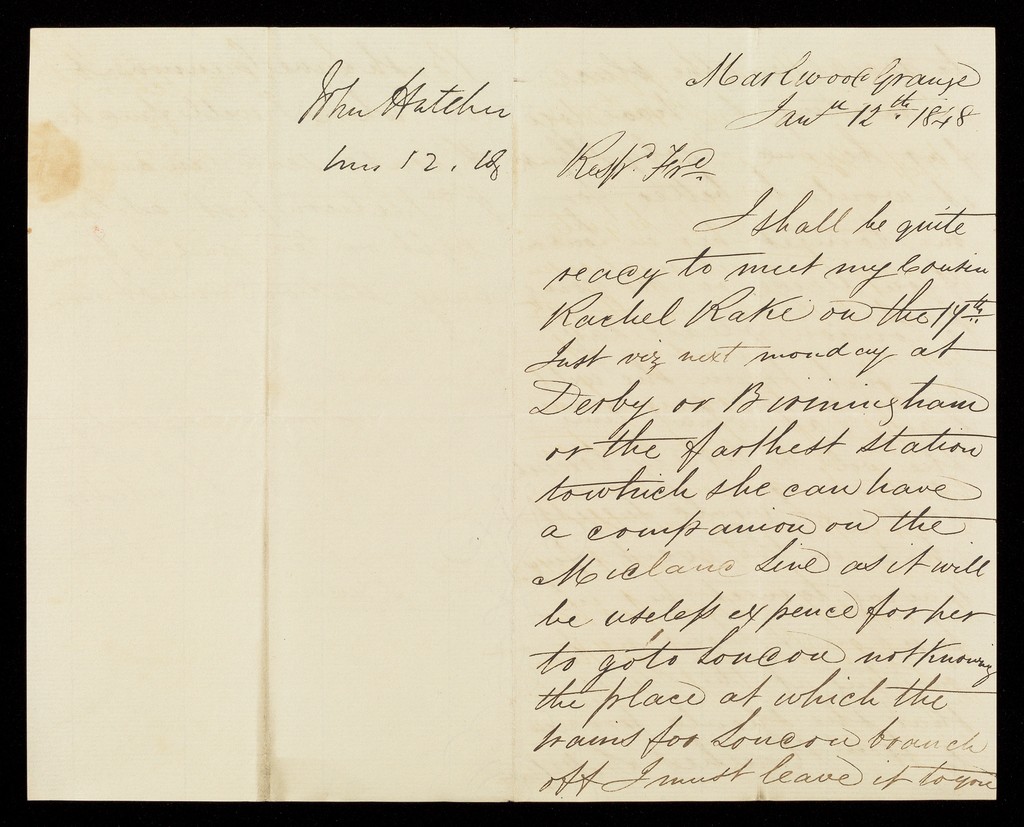 John Hatcher
12.
Marlwood Grange
Janʸ 12th. 1848
Respᵈ. Frᵈ
I shall be quite
ready to meet my Cousin
Rachel Rake on the 17th
Inst viz next monday at
Derby or Birmingham
or the farthest station
to which she can have
a companion on the
Midland Line as it will
be useless expence for her
to go to London not knowing
the place at which the
trains for London branch
off I must leave it to you